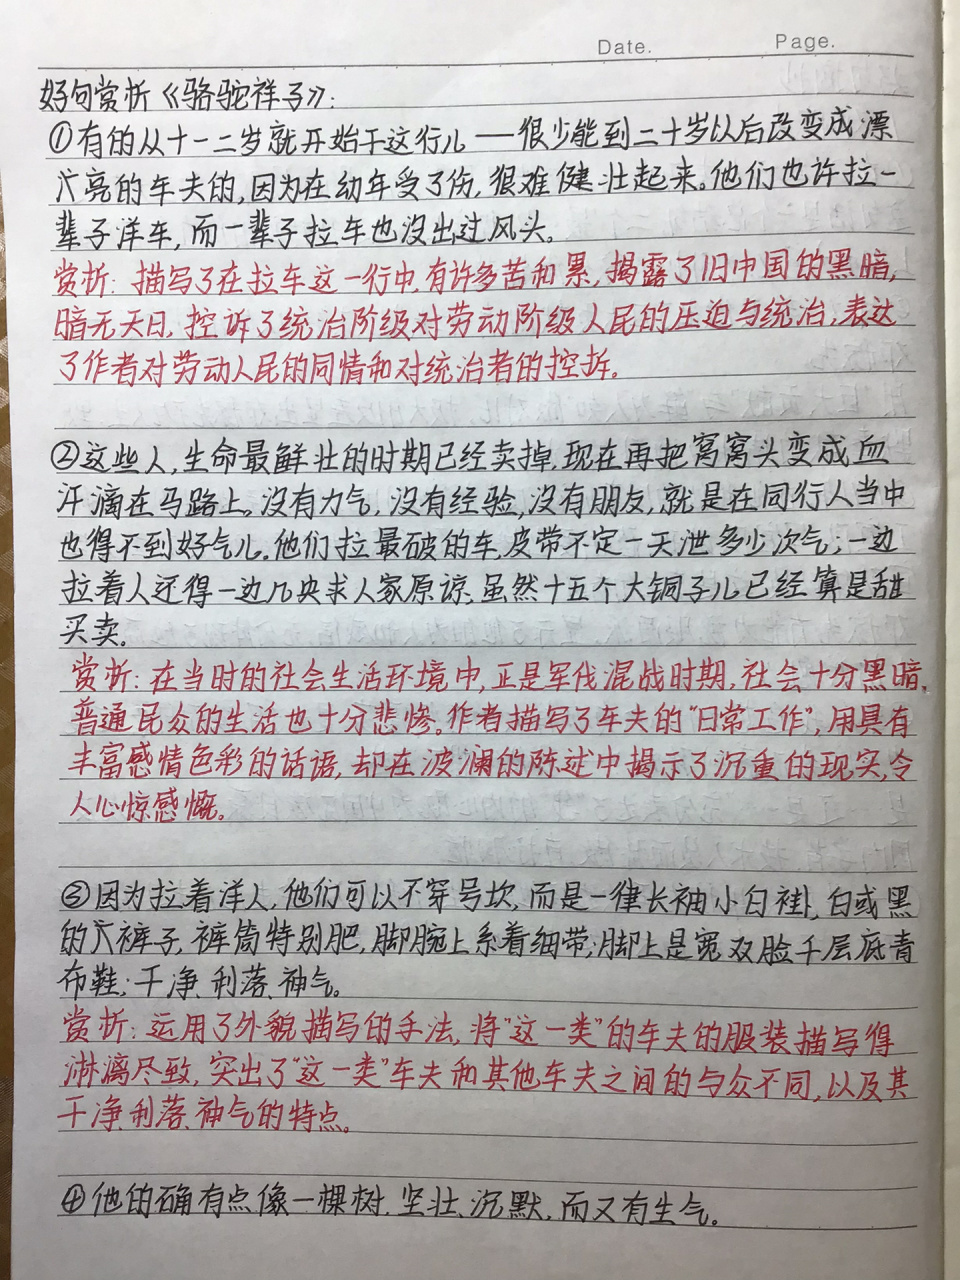 Date.
Page.
好句赏析《骆驼祥子》:
①有的从十一二岁就开始干这行儿——很少能到二十岁以后改变成漂
亮的车夫的,因为在幼年受了伤,很难健壮起来。他们也许拉一
辈子洋车,而一辈子拉车也没出过风头。
赏析:描写了在拉车这一行中,有许多苦和累,揭露了旧中国的黑暗,
暗无天日,控诉了统治阶级对劳动阶级人民的压迫与统治,表达
了作者对劳动人民的同情和对统治者的控拆。
②这些人,生命最鲜壮的时期已经卖掉,现在再把窝窝头变成血
汗滴在马路上。没有力气,没有经验,没有朋友,就是在同行人当中
也得不到好气儿。他们拉最破的车,皮带不定一天泄多少次气;一边
拉着人还得一边央求人家原谅,虽然十五个大铜子儿已经算是甜
买卖。
赏析:在当时的社会生活环境中,正是军伐混战时期,社会十分黑暗,
普通民众的生活也十分悲惨。作者描写了车夫的“日常工作”,用具有
丰富感情色彩的话语,却在波澜的陈述中揭示了沉重的现实,令
人心惊感慨。
③因为拉着洋人,他们可以不穿号坎,而是一律长袖小白褂,白或黑
的裤子,裤筒特别肥,脚腕上系着细带;脚上是宽双脸千层底青
布鞋;干净、利落、神气。
赏析:运用了外貌描写的手法,将“这一类”的车夫的服装描写得
淋漓尽致,突出了“这一类”车夫和其他车夫之间的与众不同,以及其
干净、利落、神气的特点。
④他的确有点像一棵树,坚壮、沉默,而又有生气。